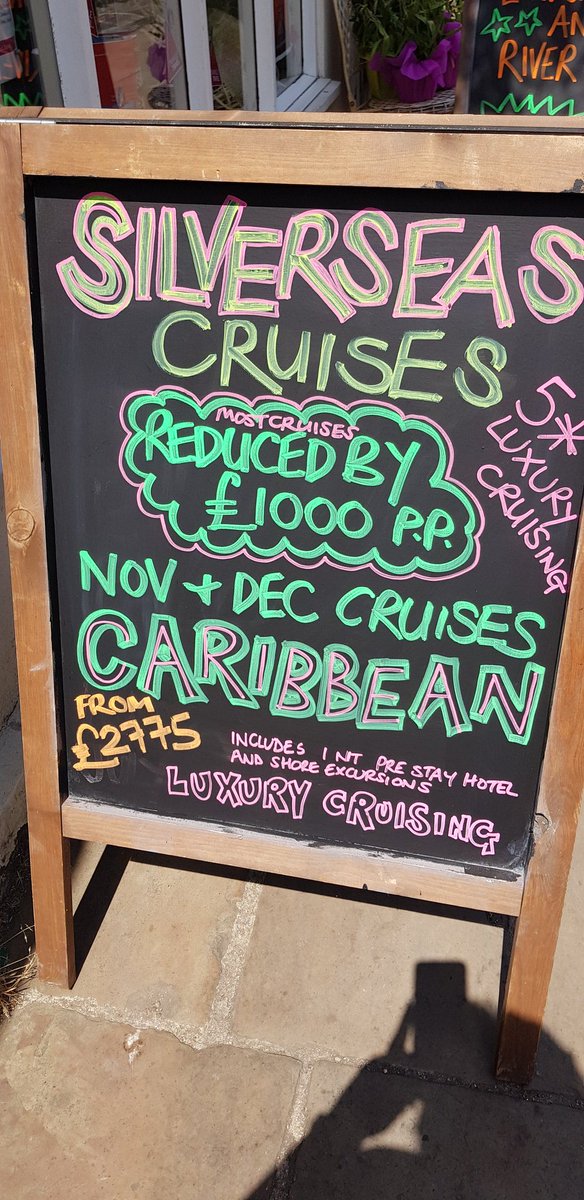 AN
RIVER
SILVERSEAS
CRUISES
MOST CRUISES
REDUCED BY
£1000 P.P.
5*
LUXURY
CRUISING
NOV + DEC CRUISES
CARIBBEAN
FROM
£2775
INCLUDES 1 NT PRE STAY HOTEL
AND SHORE EXCURSIONS
LUXURY CRUISING